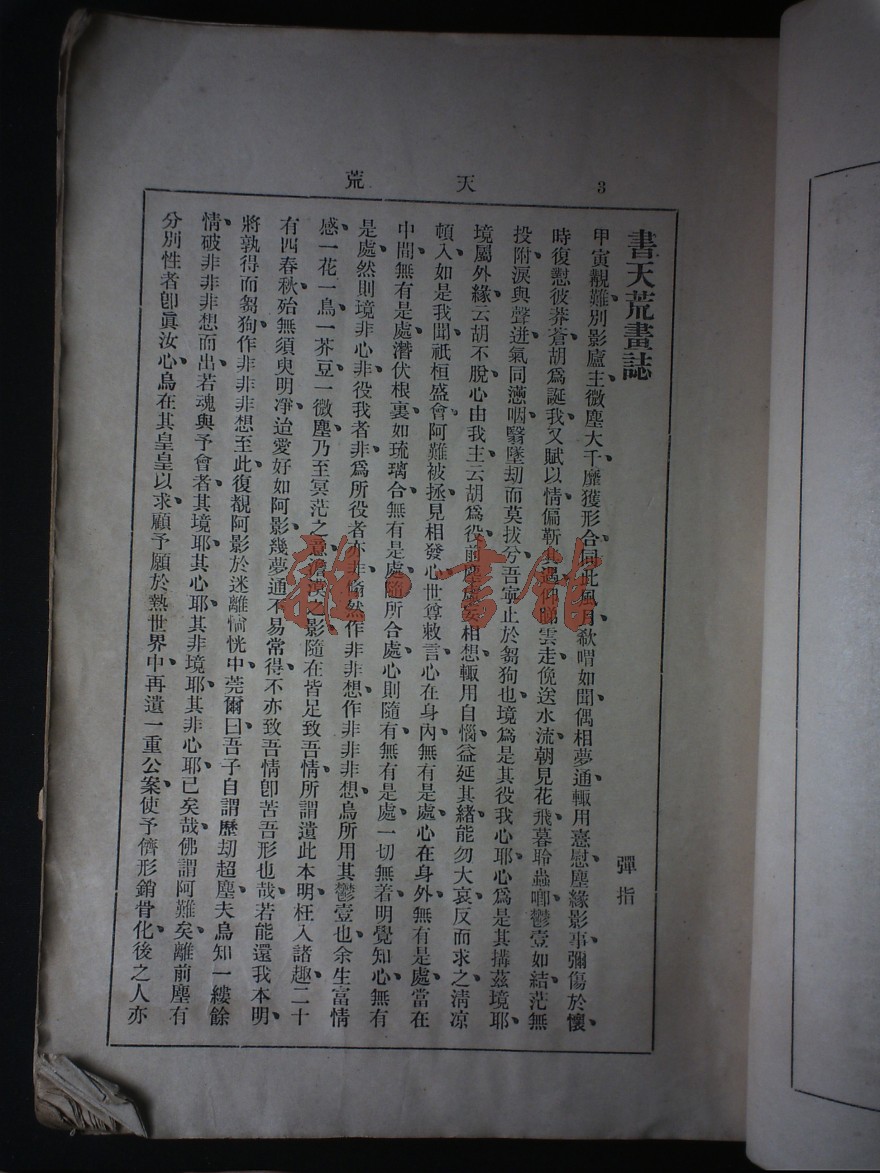 3
天荒
書天荒畫誌
彈指
甲寅覯難別影廬主微塵大千靡獲形合同此風月欷喟如聞偶相夢通輒用憙慰塵緣影事彌傷於懷
時復懟彼莽蒼胡爲誕我又賦以情偏靳其遇仰睇雲走俛送水流朝見花飛暮聆蟲啣鬱壹如結茫無
投附淚與聲迸氣同懣咽翳墜劫而莫拔兮吾寧止於芻狗也境爲是其役我心耶心爲是其搆茲境耶
境屬外緣云胡不脫心由我主云胡爲役前塵虛妄相想輒用自惱益延其緒能勿大哀反而求之清凉
頓入如是我聞祇桓盛會阿難被拯見相發心世尊敕言心在身內無有是處心在身外無有是處當在
中間無有是處潛伏根裏如琉璃合無有是處隨所合處心則隨有無有是處一切無着明覺知心無有
是處然則境非心非役我者非爲所役者亦非翛然作非非想作非非非想烏所用其鬱壹也余生富情
感一花一鳥一芥豆一微塵乃至冥茫之漠之影隨在皆足致吾情所謂遺此本明枉入諸趣二十
有四春秋殆無須臾明凈迨愛好如阿影幾夢通不易常得不亦致吾情卽苦吾形也哉若能還我本明
將孰得而芻狗作非非非想至此復覩阿影於迷離惝恍中莞爾曰吾子自謂歷劫超塵夫烏知一縷餘
情破非非非想而出若魂與予會者其境耶其心耶其非境耶其非心耶已矣哉佛謂阿難矣離前塵有
分別性者卽眞汝心烏在其皇皇以求顧予願於熱世界中再遺一重公案使予儕形銷骨化後之人亦
雜·書館